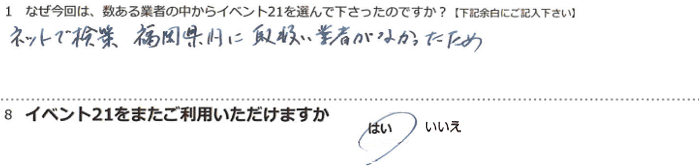 1 なぜ今回は、数ある業者の中からイベント21を選んで下さったのですか?【下記余白にご記入下さい】
ネットで検索 福岡県内に取扱い業者がなかったため
8 イベント21をまたご利用いただけますか
はい いいえ